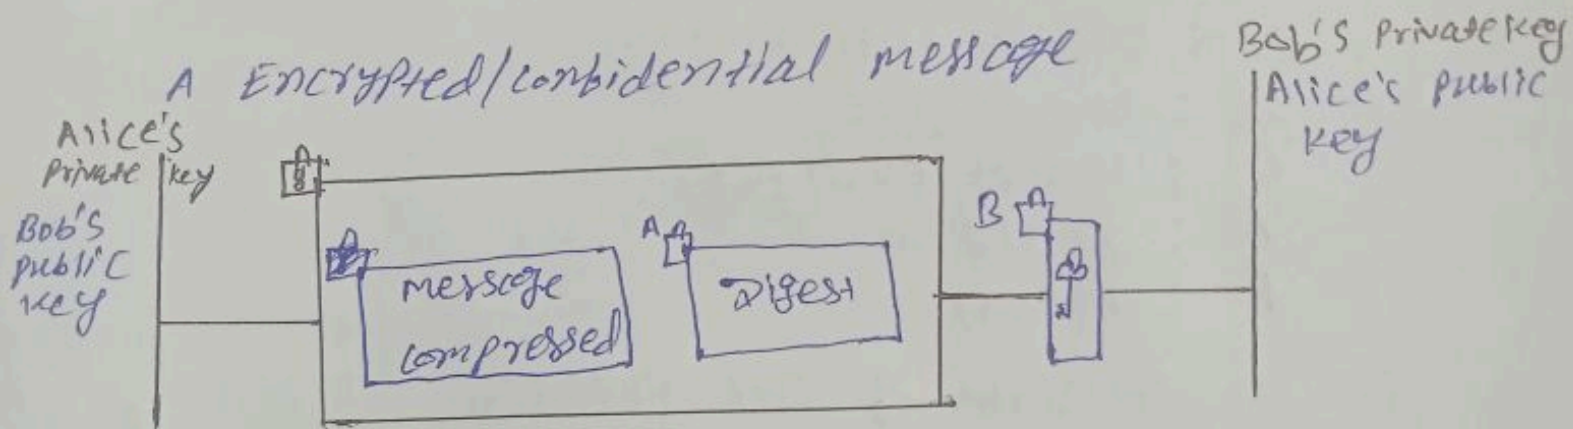 A Encrypted/confidential message
Bob's Private key
Alice's public
key
Alice's
Private key
Bob's
public
key
A
message
compressed
Digest
B